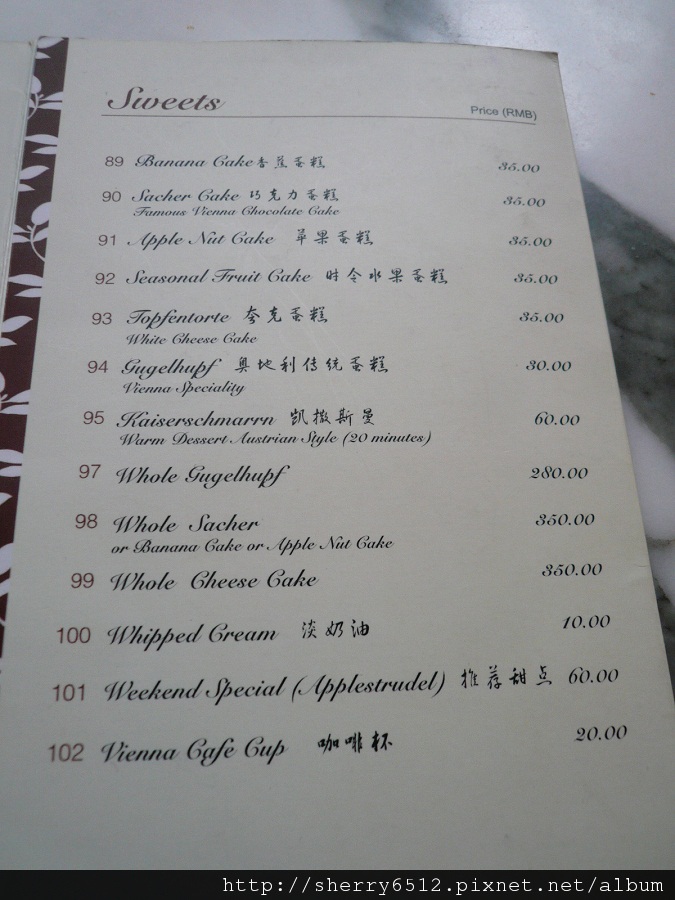 Sweets
Price (RMB)
89 Banana Cake 香蕉蛋糕 35.00
90 Sacher Cake 巧克力蛋糕 35.00
Famous Vienna Chocolate Cake
91 Apple Nut Cake 苹果蛋糕 35.00
92 Seasonal Fruit Cake 时令水果蛋糕 35.00
93 Topfentorte 夸克蛋糕 35.00
White Cheese Cake
94 Gugelhupf 奥地利传统蛋糕 30.00
Vienna Speciality
95 Kaiserschmarrn 凯撒斯曼 60.00
Warm Dessert Austrian Style (20 minutes)
97 Whole Gugelhupf 280.00
98 Whole Sacher 350.00
or Banana Cake or Apple Nut Cake
99 Whole Cheese Cake 350.00
100 Whipped Cream 淡奶油 10.00
101 Weekend Special (Applestrudel) 推荐甜点 60.00
102 Vienna Cafe Cup 咖啡杯 20.00
http://sherry6512.pixnet.net/album